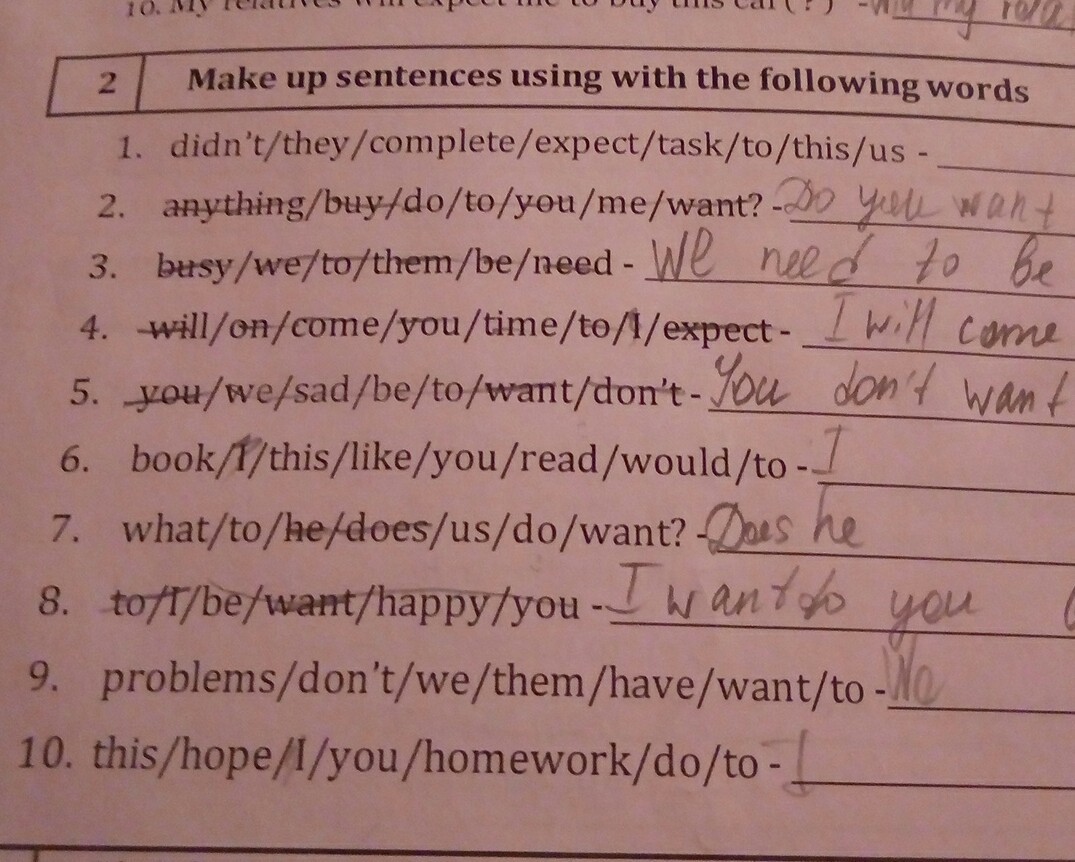 10. My relatives will expect me to buy this car ( ? ) - my rela
2 Make up sentences using with the following words
1. didn't/they/complete/expect/task/to/this/us -
2. anything/buy/do/to/you/me/want? - Do you want
3. busy/we/to/them/be/need - We need to be
4. will/on/come/you/time/to/I/expect - I will come
5. you/we/sad/be/to/want/don't - You don't want
6. book/I/this/like/you/read/would/to - I
7. what/to/he/does/us/do/want? - Does he
8. to/I/be/want/happy/you - I want to you
9. problems/don't/we/them/have/want/to - We
10. this/hope/I/you/homework/do/to - I